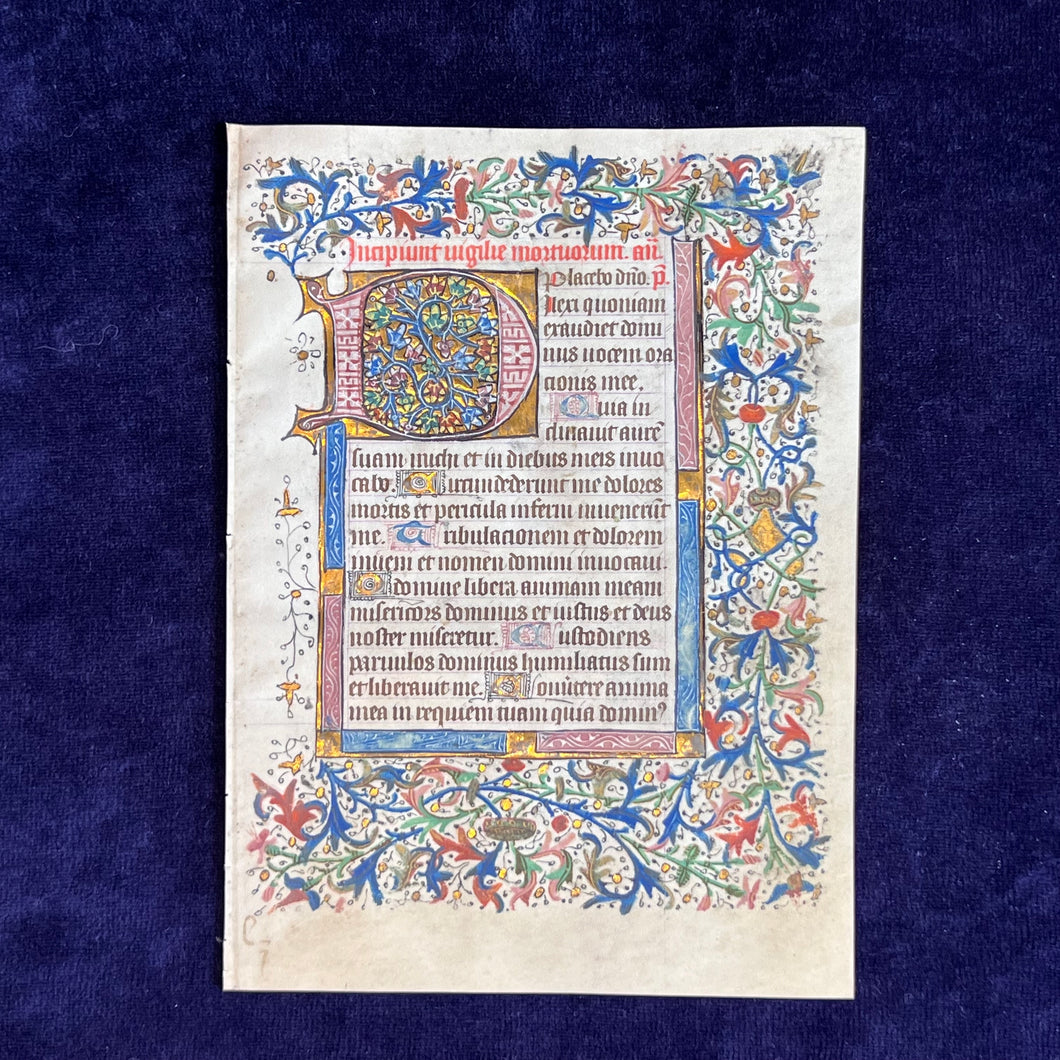 Incipiunt vigilie mortuorum. añ.
Placebo dño. p̄.
Dilexi quoniam
exaudiet domi
nus vocem ora
cionis mee.
Quia in
clinavit aurē
suam michi et in diebus meis invo
cabo. Circundederunt me dolores
mortis et pericula inferni invenerūt
me. Tribulacionem et dolorem
inveni et nomen domini invocavi.
O domine libera animam meam
misericors dominus et iustus et deus
noster miseretur. Custodiens
parvulos dominus humiliatus sum
et liberavit me. Convertere anima
mea in requiem tuam quia dominꝰ